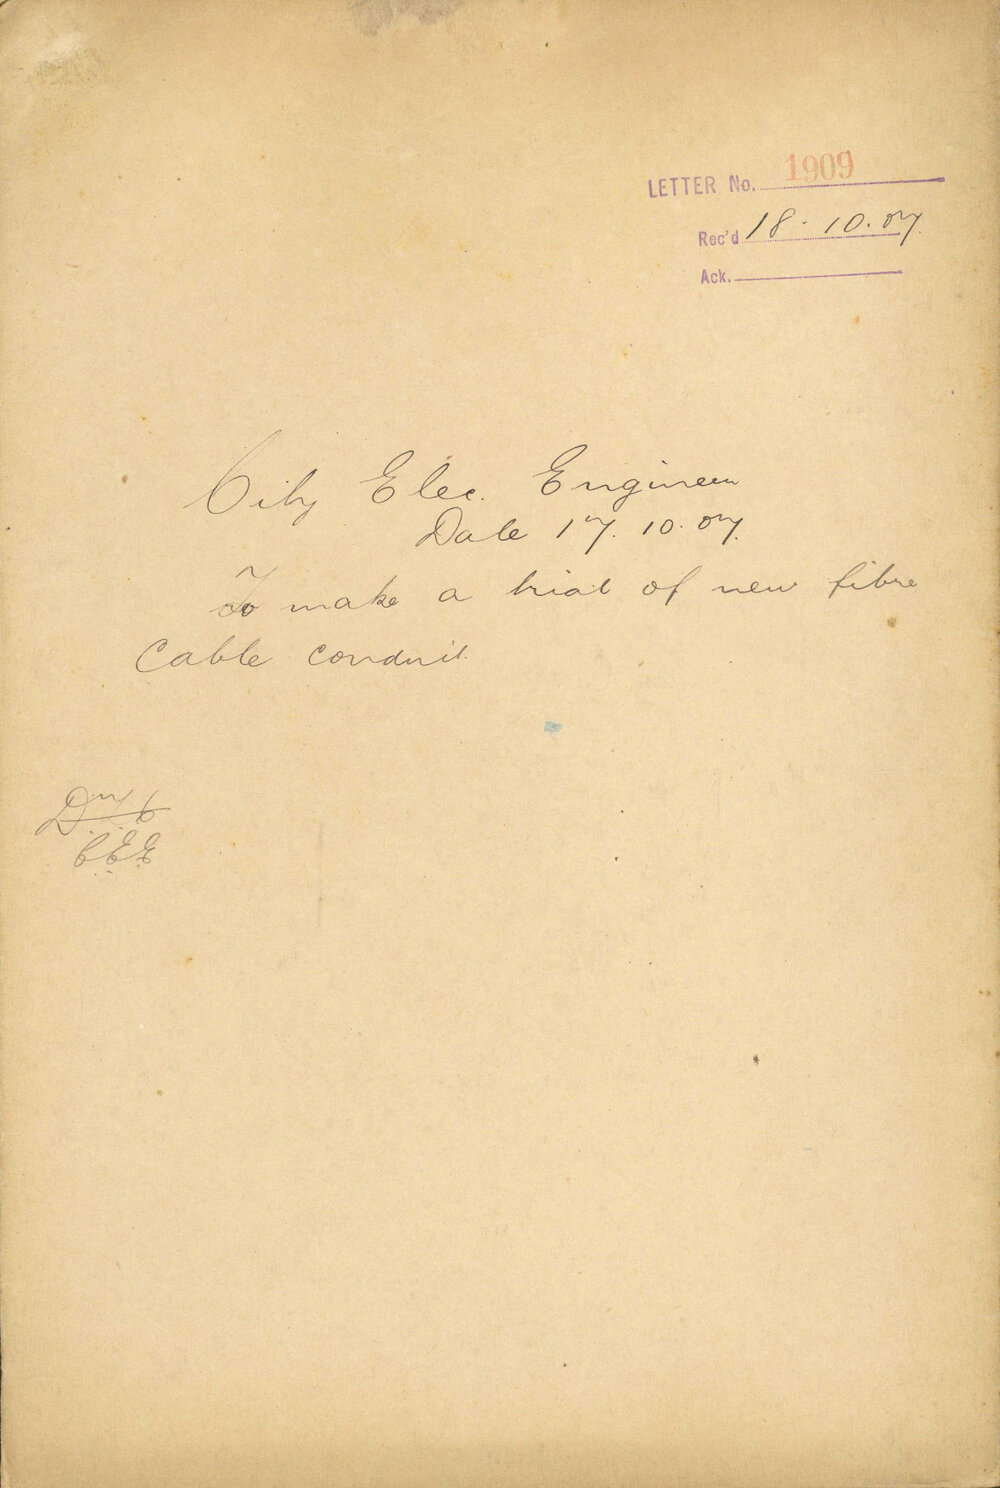 LETTER No. 1909
Rec'd 18.10.07.
Ack.
City Elec. Engineer
Date 17.10.07.
To make a trial of new fibre
cable conduit.
C.E.E